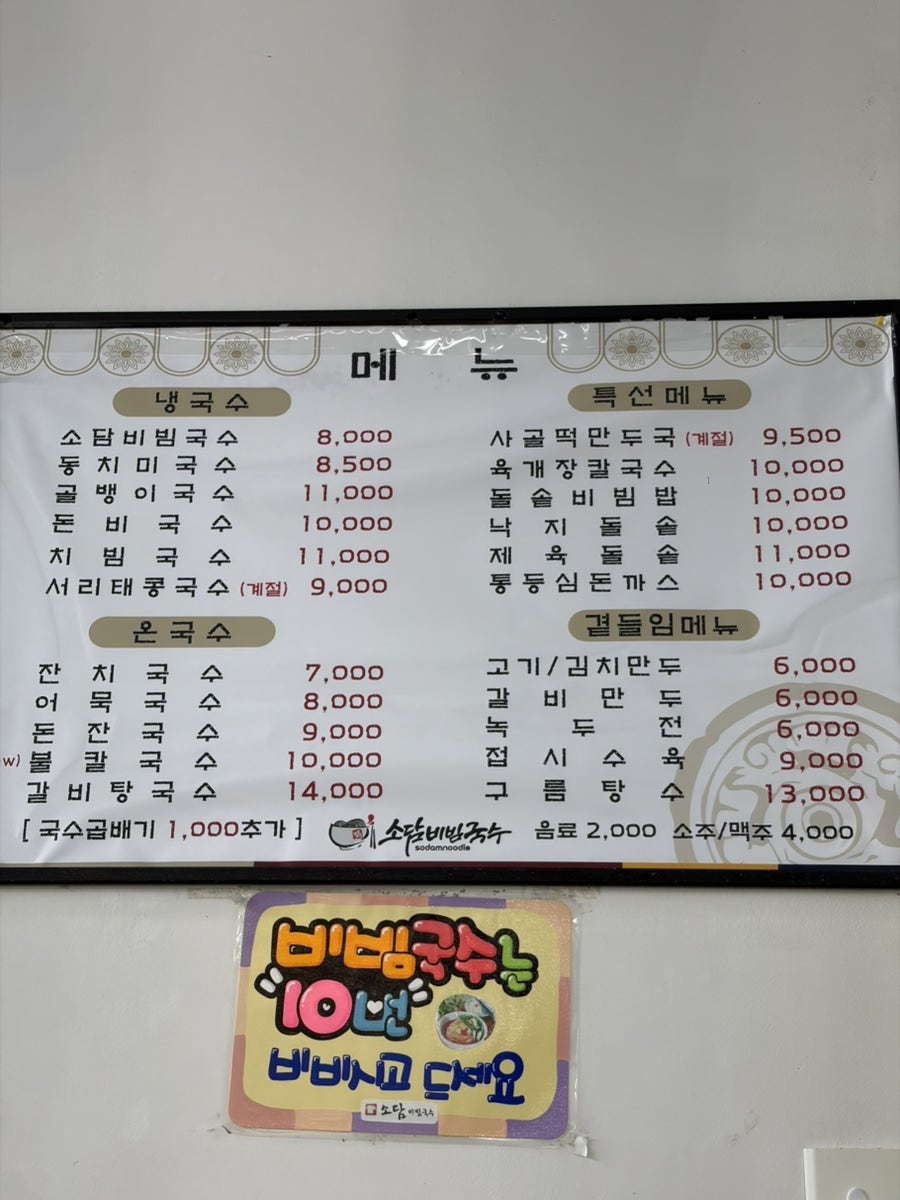 메뉴
냉국수
소담비빔국수 8,000
동치미국수 8,500
골뱅이국수 11,000
돈비국수 10,000
치빔국수 11,000
서리태콩국수 (계절) 9,000
온국수
잔치국수 7,000
어묵국수 8,000
돈잔국수 9,000
w) 불칼국수 10,000
갈비탕국수 14,000
[ 국수곱배기 1,000추가 ]
특선메뉴
사골떡만두국 (계절) 9,500
육개장칼국수 10,000
돌솥비빔밥 10,000
낙지돌솥 10,000
제육돌솥 11,000
통등심돈까스 10,000
곁들임메뉴
고기/김치만두 6,000
갈비만두 6,000
녹두전 6,000
접시수육 9,000
구름탕수 13,000
소담비빔국수
sodamnoodle
음료 2,000 소주/맥주 4,000
비빔국수는
"10번"
비비시고 드세요
소담비빔국수